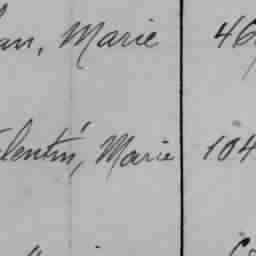 an, Marie 46
lentin, Marie 104